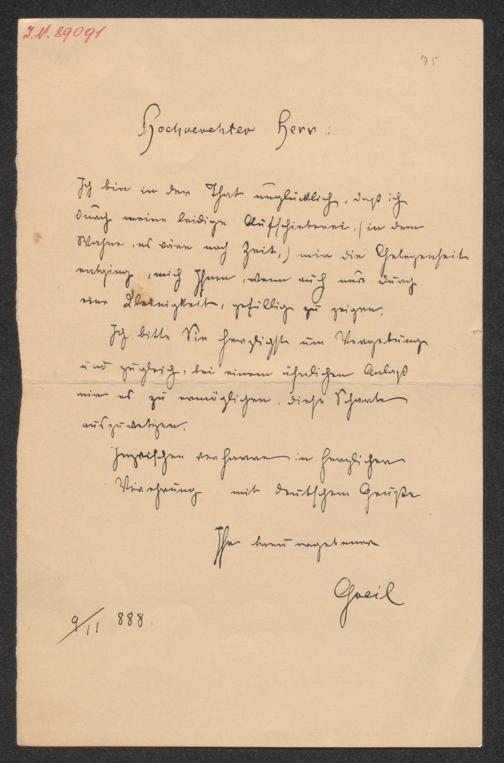 I.N. 89091
95
Hochverehrter Herr:
Ich bin in der That unglücklich, daß ich
durch meine leidige Aufschieberei, (in dem
Wahne, es wäre noch Zeit,) mir die Gelegenheit
entging, mich Ihnen, wenn auch nur durch
eine Kleinigkeit, gefällig zu zeigen.
Ich bitte Sie herzlichst um Vergebung
und zugleich, bei einem ähnlichen Anlaß
mir es zu ermöglichen, diese Scharte
auszuwetzen.
Inzwischen verharre in herzlicher
Verehrung mit deutschem Gruße
Ihr treu ergebener
Greil
9/11 888.